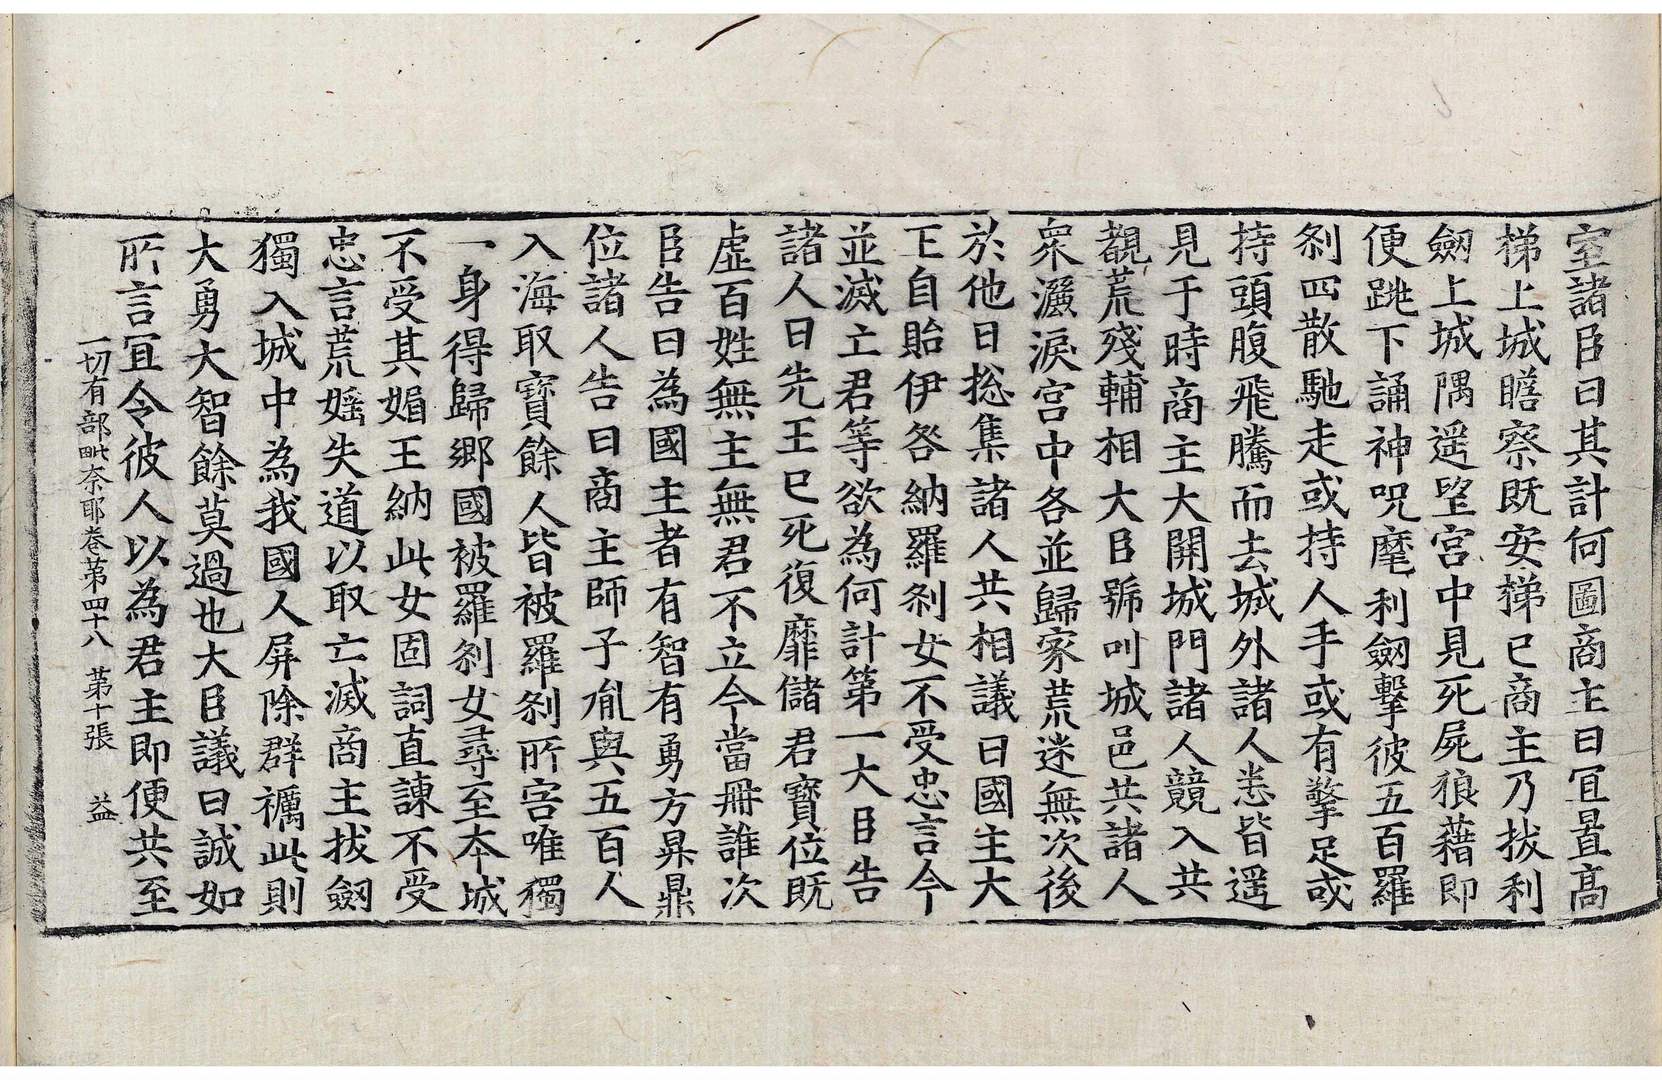 室諸臣曰其計何圖商主曰冝置高
梯上城瞻察既安梯已商主乃拔利
劒上城隅遥望宮中見死屍狼藉即
便跳下誦神呪麾利劒擊彼五百羅
刹四散馳走或持人手或有擎足或
持頭腹飛騰而去城外諸人悉皆遥
見于時商主大開城門諸人競入共
覩荒殘輔相大臣號叫城邑共諸人
衆灑淚宮中各並歸家荒迷無次後
於他日揔集諸人共相議曰國主大
王自貽伊咎納羅刹女不受忠言今
並滅亡君等欲為何計第一大臣告
諸人曰先王已死復靡儲君寶位既
虛百姓無主無君不立今當冊誰次
臣告曰為國主者有智有勇方昇鼎
位諸人告曰商主師子胤與五百人
入海取寶餘人皆被羅刹所害唯獨
一身得歸鄉國被羅刹女尋至本城
不受其媚王納此女固詞直諫不受
忠言荒婬失道以取亡滅商主拔劒
獨入城中為我國人屏除群禍此則
大勇大智餘莫過也大臣議曰誠如
所言冝令彼人以為君主即便共至
一切有部毗奈耶卷第四十八　第十張　益